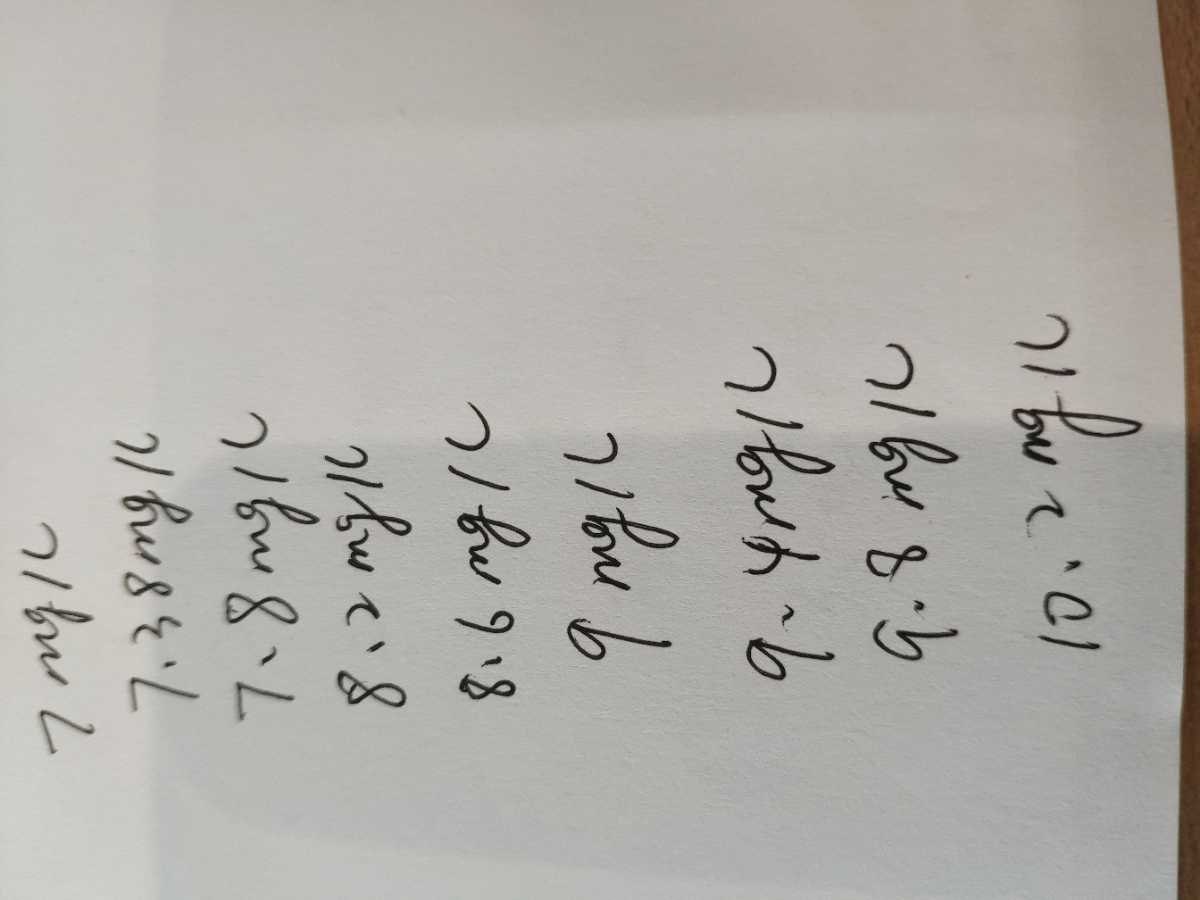 7 mg/L
7.38 mg/L
7.8 mg/L
8.2 mg/L
8.6 mg/L
9 mg/L
9.4 mg/L
9.8 mg/L
10.2 mg/L